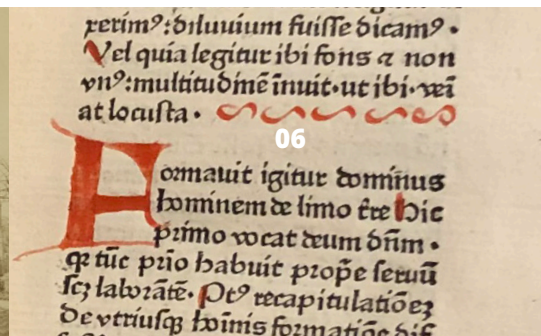 xerimꝰ:diluuium fuiſſe dicamꝰ.
Vel quia legitur ibi fons ⁊ non
vnꝰ:multitudinē īnuit.ut ibi.veī
at locuſta.
06
Formauit igitur dominus
hominem de limo t̄re hic
primo vocat deum dn̄m.
qꝛ tūc p̄io habuit prop̄e ſeruū
ſcꝫ laborātē. Ptꝰ recapitulatiōeꝫ
De vtriuſqꝫ hoīnis formatiōe dif